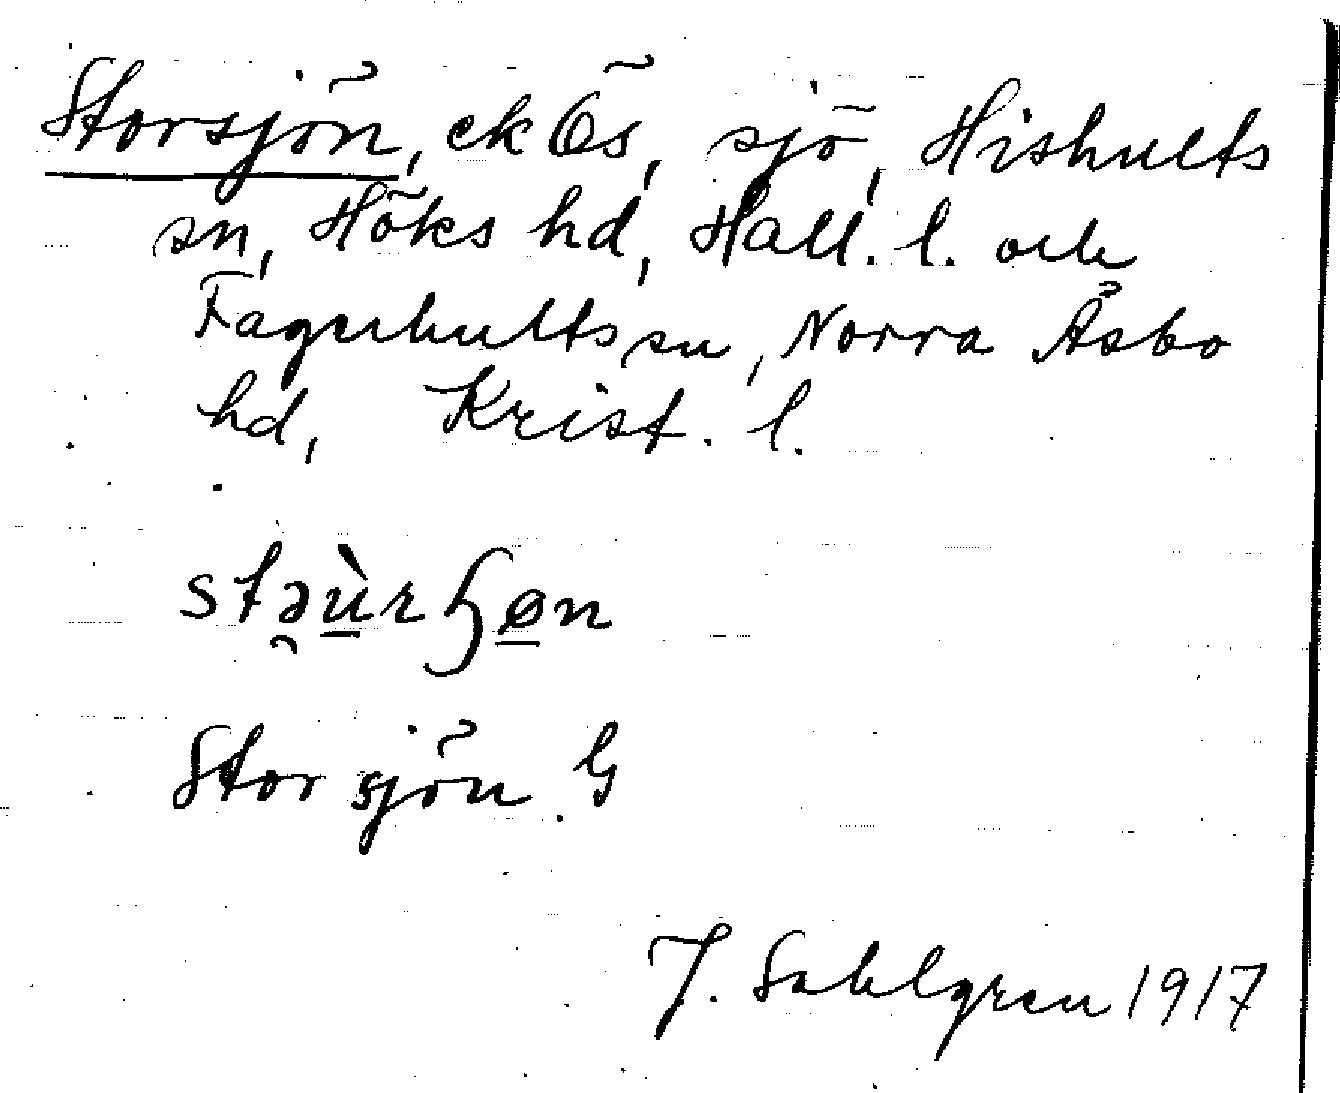 Storsjön, ek Ös, sjö, Hishults
sn, Höks hd, Hall. l. och
Fagerhults sn, Norra Åsbo
hd, Krist. l.
stə̯ù̲rɧø̲n
Storsjön G
J. Sahlgren 1917